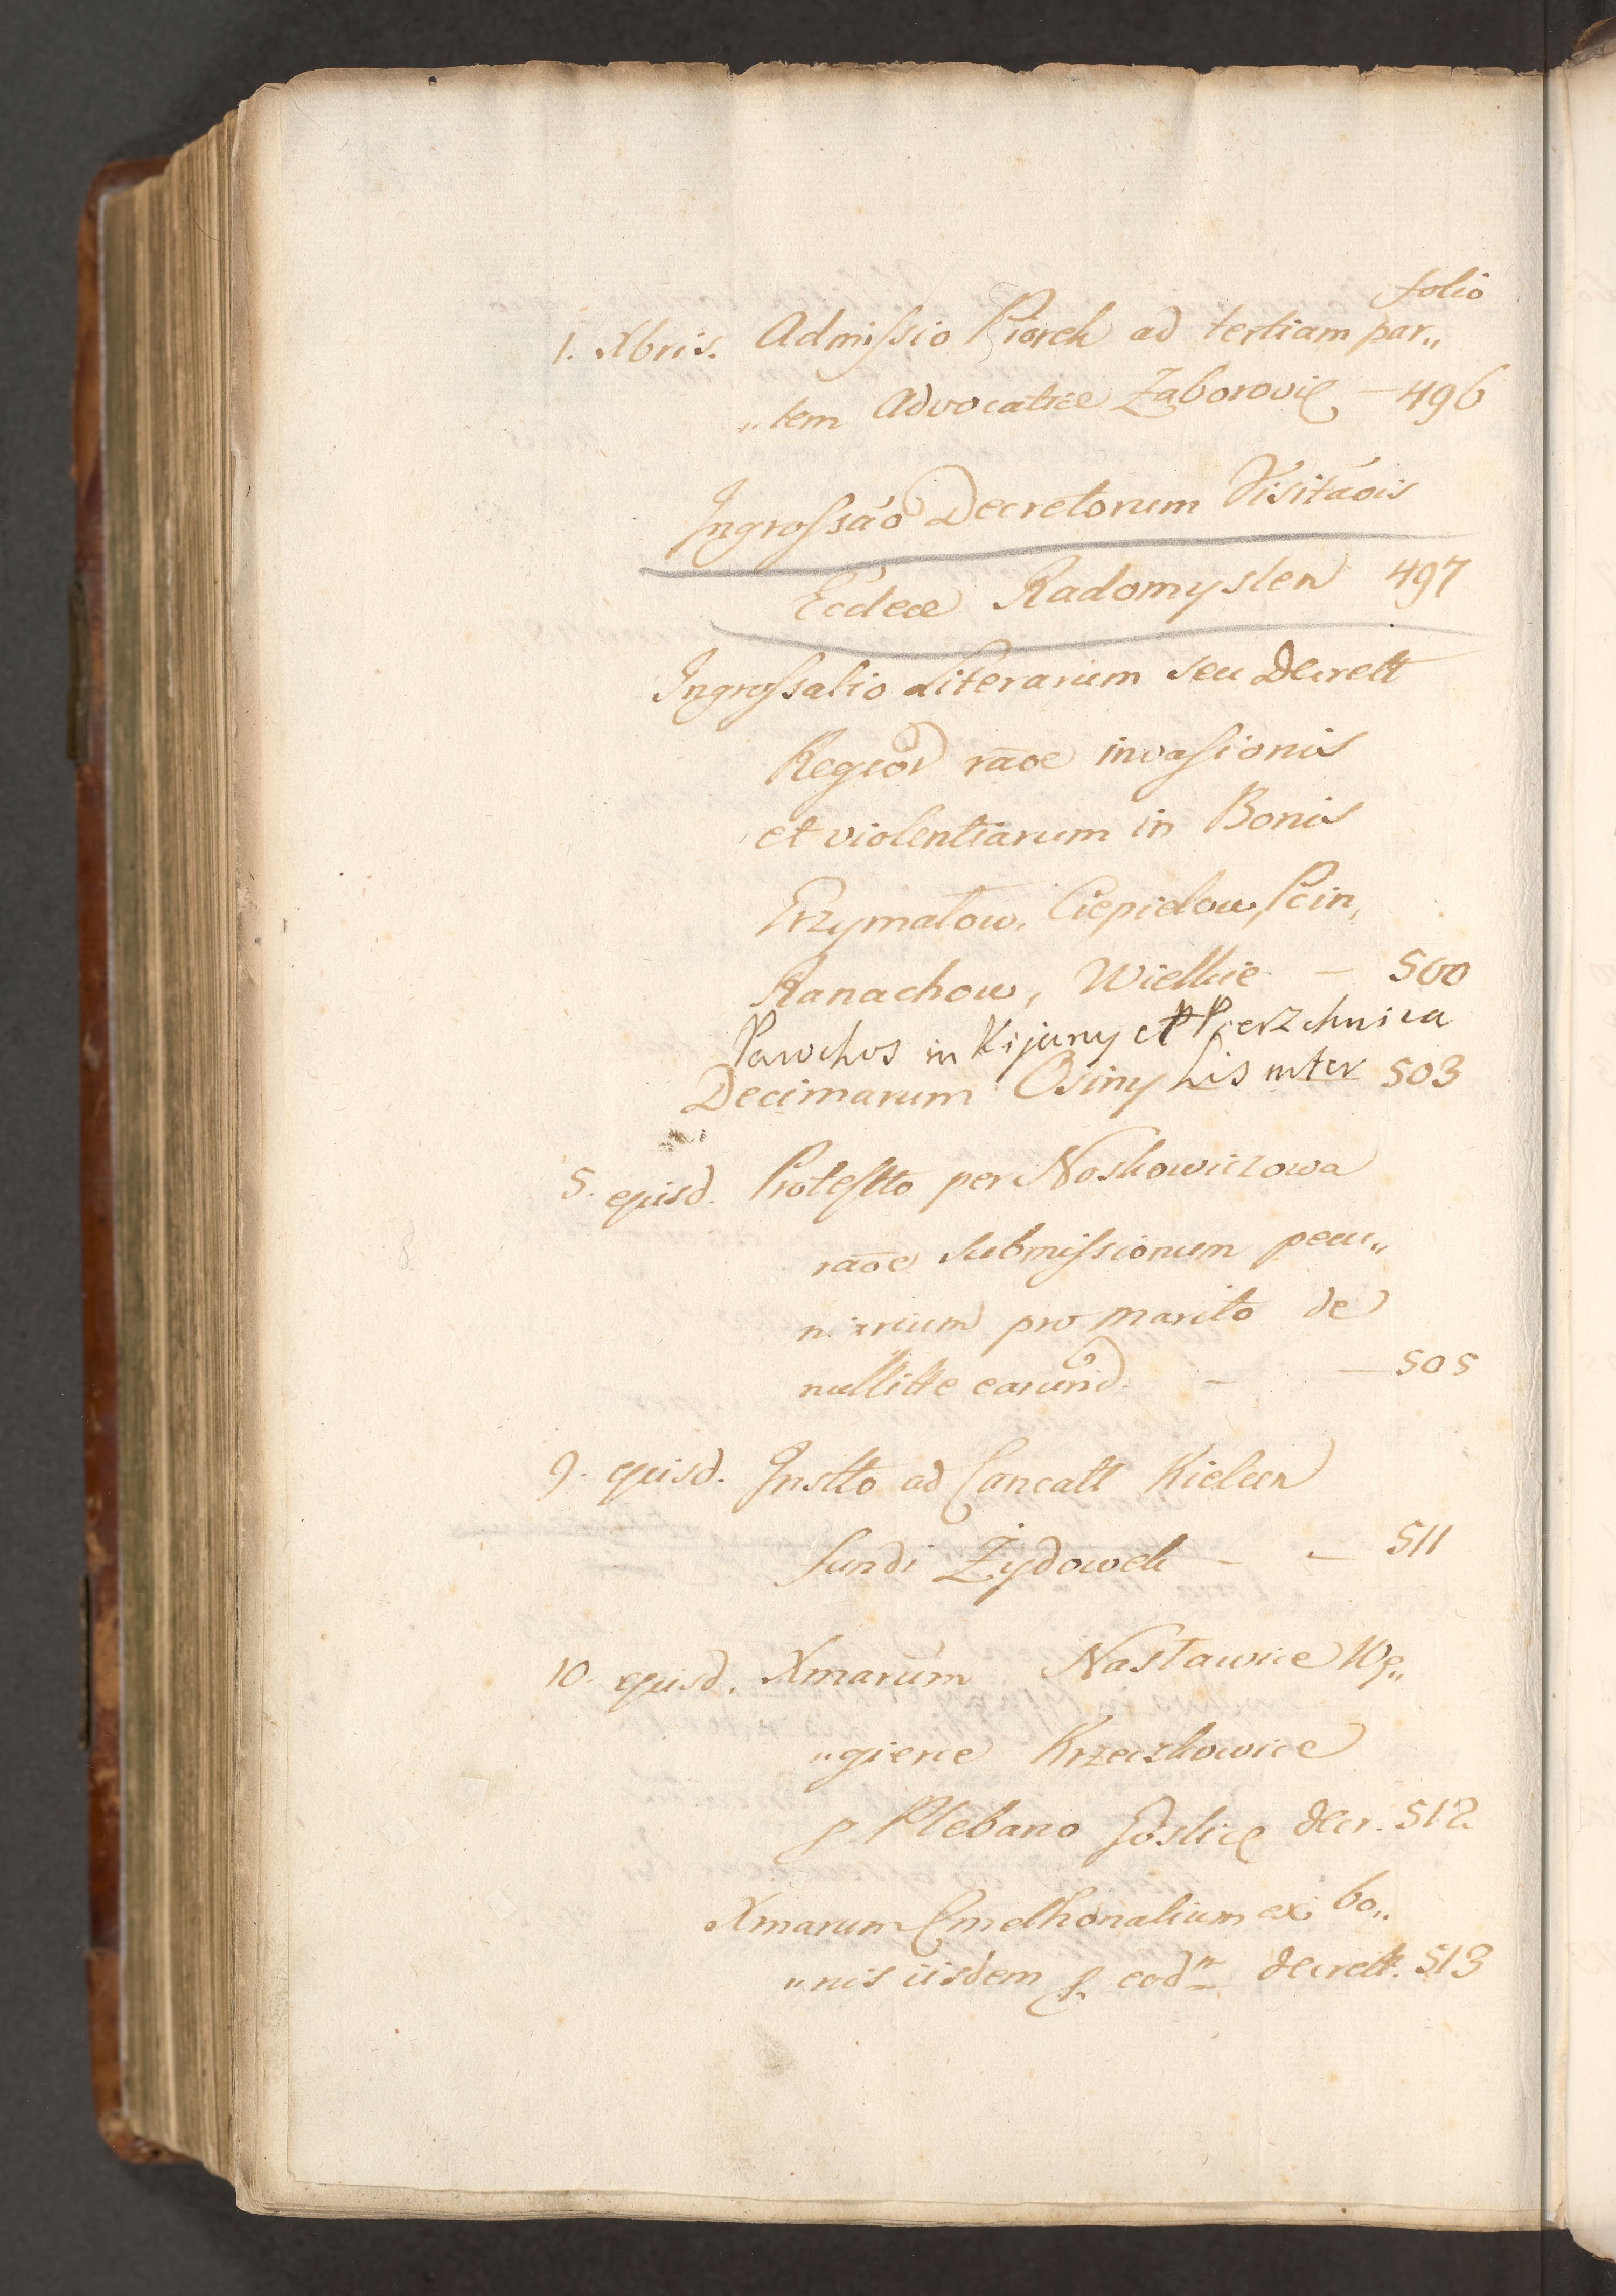 folio
1. Xbris. Admissio Piorek ad tertiam par„
„tem Advocatiæ Zaborovie — 496
Ingrossāo Decretorum Visitāois
Eccleæ Radomyslen 497
Ingrossatio Literarum seu Decrett
Regior raōe invasionis
et violentiarum in Bonis
Krzymatow, Ciepielow, Pcin,
Kanachow, Wielkie — 500
Parochos in Kijany et Pierzchnica
Decimarum Osiny Lis inter 503
5. ejusd. Protestto per Noskowiczowa
raōe submissionum pecu„
niarium pro marito de
nullitte earund. — — 505
9. ejusd. Instto ad Cancatt Kielcen
fundi Żydowek — — 511
10. ejusd. Xmarum Nasławice Wę„
„gierce Krzeczkowice
p Plebano Goslice decr. 512
Xmarum Cmethonalium ex bo„
„nis iisdem p eodm decrett. 513